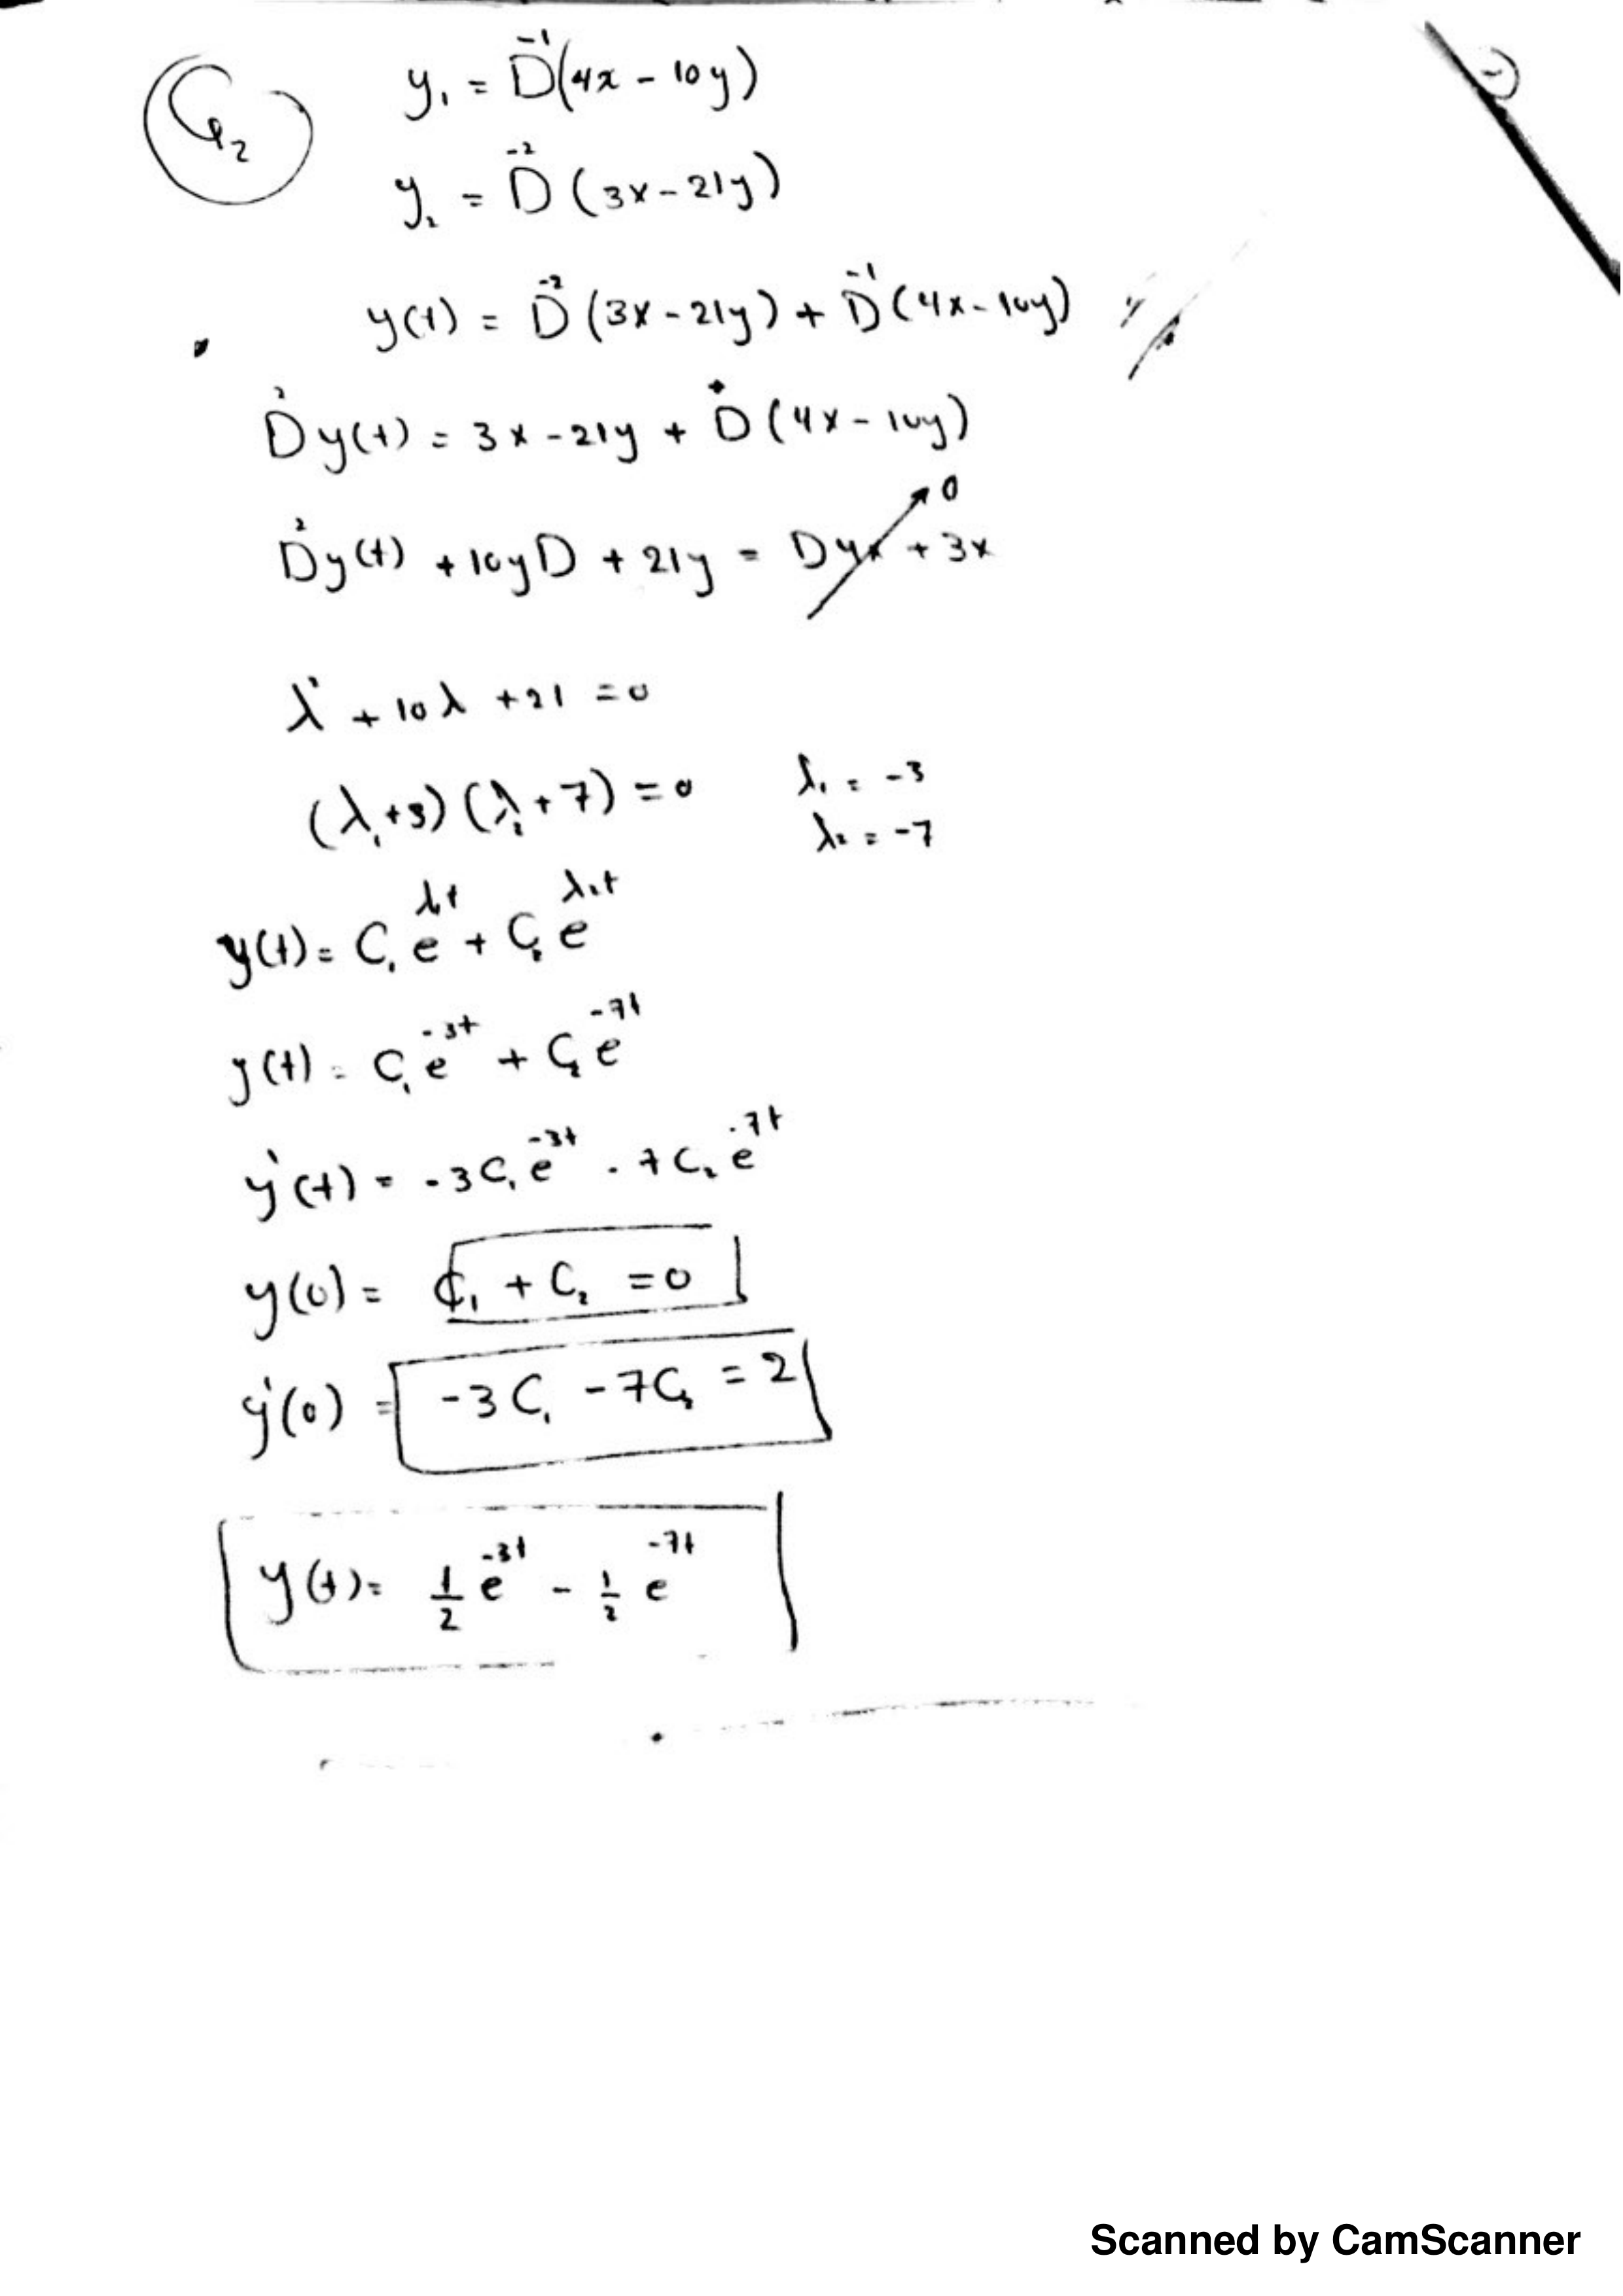 Q₂
y₁ = D⁻¹(4x - 10y)
y₂ = D⁻²(3x - 21y)
y(t) = D⁻²(3x - 21y) + D⁻¹(4x - 10y)
D²y(t) = 3x - 21y + D(4x - 10y)
0
D²y(t) + 10yD + 21y = D4x + 3x
λ² + 10λ + 21 = 0
(λ₁+3)(λ₂+7) = 0 λ₁ = -3
λ₂ = -7
y(t) = C₁e^λ₁t + C₂e^λ₂t
y(t) = C₁e^-3t + C₂e^-7t
y'(t) = -3C₁e^-3t - 7C₂e^-7t
y(0) = C₁ + C₂ = 0
y'(0) = -3C₁ - 7C₂ = 2
y(t) = 1/2 e^-3t - 1/2 e^-7t
Scanned by CamScanner